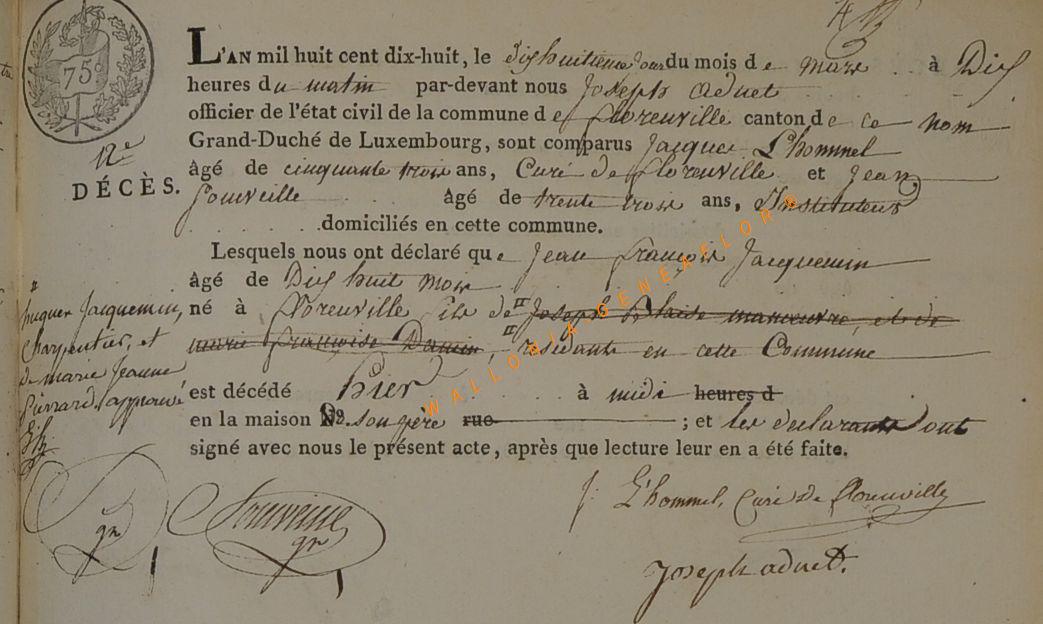 75 c
12e
DÉCÈS.
L'AN mil huit cent dix-huit, le dixhuitieme jour du mois de mars à Dix
heures du matin par-devant nous Joseph aduet
officier de l'état civil de la commune de florenville canton de ce nom
Grand-Duché de Luxembourg, sont comparus Jacques L'hommel
âgé de cinquante trois ans, Curé de florenville et Jean
âgé de trente trois ans, Instituteur
domiciliés en cette commune.
Lesquels nous ont déclaré que Jean françois Jacquemin
âgé de Dix huit mois
né à florenville fils de Joseph Blaise manoeuvre, et de
marie françoise Damin, residants en cette Commune
hugues Jacquemin,
Charpentier, et
de marie Jeanne
Pierrard. approuvé
est décédé hier à midi heures d
en la maison No. son père rue ; et les declarants ont
signé avec nous le présent acte, après que lecture leur en a été faite.
J: L'hommel, Curé de florenville
Joseph aduet.
WALLONIA GENEAFLORE